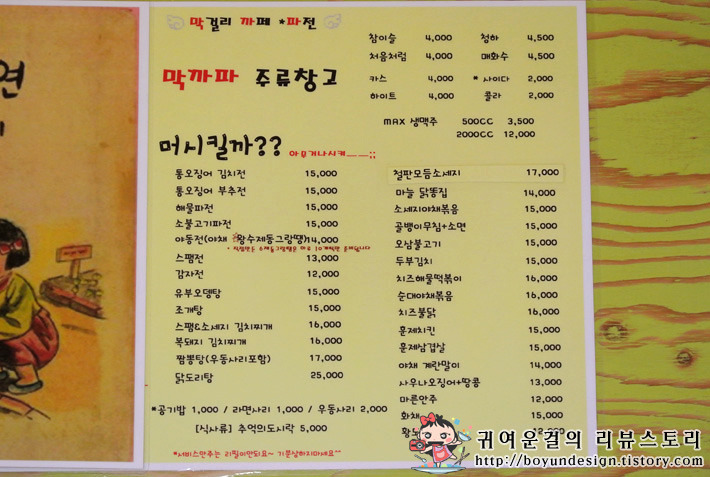 연
막걸리 까페 *파전
막까파 주류창고
참이슬 4,000 청하 4,500
처음처럼 4,000 매화수 4,500
카스 4,000 * 사이다 2,000
하이트 4,000 콜라 2,000
MAX 생맥주 500CC 3,500
2000CC 12,000
머시킬까?? 아무거나시켜__;;
통오징어 김치전 15,000
통오징어 부추전 15,000
해물파전 15,000
소불고기파전 15,000
야동전(야채 왕수제동그랑땡)14,000
스팸전 13,000
감자전 12,000
유부오뎅탕 15,000
조개탕 15,000
스팸&소세지 김치찌개 16,000
목돼지 김치찌개 16,000
짬뽕탕(우동사리포함) 17,000
닭도리탕 25,000
*공기밥 1,000 / 라면사리 1,000 / 우동사리 2,000
[식사류] 추억의도시락 5,000
*서비스안주는 리필이안되요~ 기분상하지마세요^^
철판모듬소세지 17,000
마늘 닭똥집 14,000
소세지야채볶음 15,000
골뱅이무침+소면 15,000
오삼불고기 15,000
두부김치 15,000
치즈해물떡볶이 16,000
순대야채볶음 16,000
치즈불닭 16,000
문제치킨 15,000
문제삼겹살 15,000
야채 계란말이 14,000
사우나오징어+땅콩 13,000
마른안주 12,000
화채 15,000
황 12,000
귀여운걸의 리뷰스토리
http://boyundesign.tistory.com